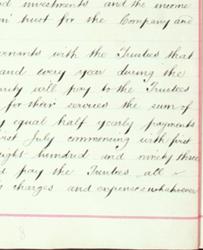 investments and the income
in trust for the Company and
covenants with the Trustees that
and every year during the
will pay to the Trustees
for their services the sum of
equal half yearly payments
July commencing with first
eight hundred and ninety three
pay the Trustees all
charges and expenses whatsoever